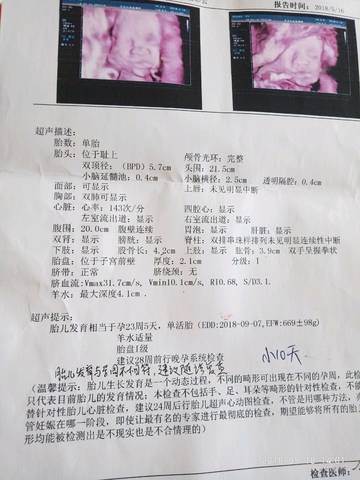 报告时间：2018/5/16
超声描述：
胎数：单胎
胎头：位于耻上 颅骨光环：完整
双顶径：（BPD）5.7cm 头围：21.5cm
小脑延髓池：0.4cm 小脑横径：2.5cm 透明隔腔：0.4cm
面部：可显示 上唇：未见明显中断
胸部：双肺可显示
心脏：心率：143次/分 四腔心：显示
左室流出道：显示 右室流出道：显示
腹围：20.0cm 腹壁连续 胃泡：显示 肝脏：显示
双肾：显示 膀胱：显示 脊柱：双排串珠样排列未见明显连续性中断
下肢：显示 股骨长：4.2cm 上肢：显示 肱骨：3.9cm 双手呈握拳状
胎盘：位于子宫前壁 厚度：2.1cm 分级：1
脐带：正常 脐绕颈：无
脐血流：Vmax31.7cm/s, Vmin10.1cm/s, RI0.68, S/D3.1.
羊水：最大深度4.1cm .
超声提示：
胎儿发育相当于孕23周5天，单活胎（EDD:2018-09-07,EFW:669±98g）
羊水适量
胎盘I级
建议28周前行晚孕系统检查
小10天
胎儿发育与孕周不符，建议随诊复查
（温馨提示：胎儿生长发育是一个动态过程，不同的畸形可出现在不同的孕周，此检
只代表目前胎儿的发育情况；本检查不包括手、足、耳朵等畸形的针对性检查，不能
替针对性胎儿心脏检查，建议24周后行胎儿超声心动图检查，不管是用哪种方法，亦
管妊娠在哪一阶段，即使让最有名的专家进行最彻底的检查，期望能够将所有的胎儿
形均能被检测出是不现实也是不合情理的）
检查医师：